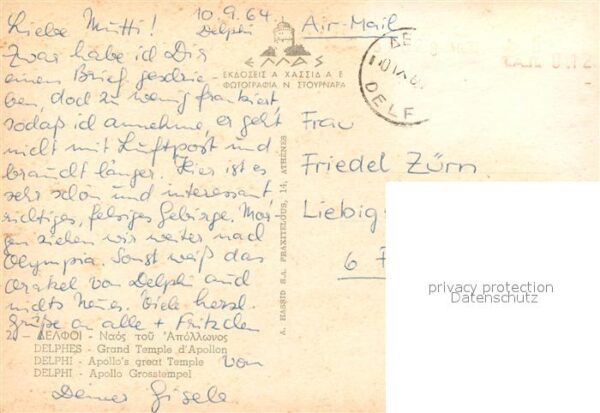 10.9.64
Delphi
Liebe Mutti!
Zwar habe ich Dir
einen Brief geschrie-
ben, doch zu wenig frankiert,
sodaß ich annehme, er geht
nicht mit Luftpost und
braucht länger. Hier ist es
sehr schön und interessant,
richtiges, felsiges Gebirge. Mor-
gen ziehen wir weiter nach
Olympia. Sonst weiß das
Orakel von Delphi auch
nichts Neues. Viele herzl.
Grüße an alle + Fritzchen
von
Deiner Gisela
2 - ΔΕΛΦΟΙ - Ναὸς τοῦ Ἀπόλλωνος
DELPHES - Grand Temple d'Apollon
DELPHI - Apollo's great Temple
DELPHI - Apollo Grosstempel
ΕΛΛΑΣ
ΕΚΔΟΣΕΙΣ Α ΧΑΣΣΙΔ Α Ε
ΦΩΤΟΓΡΑΦΙΑ Ν ΣΤΟΥΡΝΑΡΑ
A. HASSID S.A. PRAXITELOUS, 14, ATHENES
Air-Mail
DELF
Frau
Friedel Zürn
Liebig
6 F
privacy protection
Datenschutz